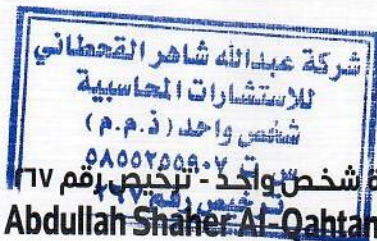 شركة عبدالله شاهر القحطاني
للاستشارات المحاسبية
شخص واحد ( ذ.م.م )
س.ت ٥٨٥٥٢٥٥٩٠٧
ة شخص واحد - ترخيص رقم ٢٦٧
ترخيص رقم ٢٦٧
Abdullah Shaher Al-Qahtan